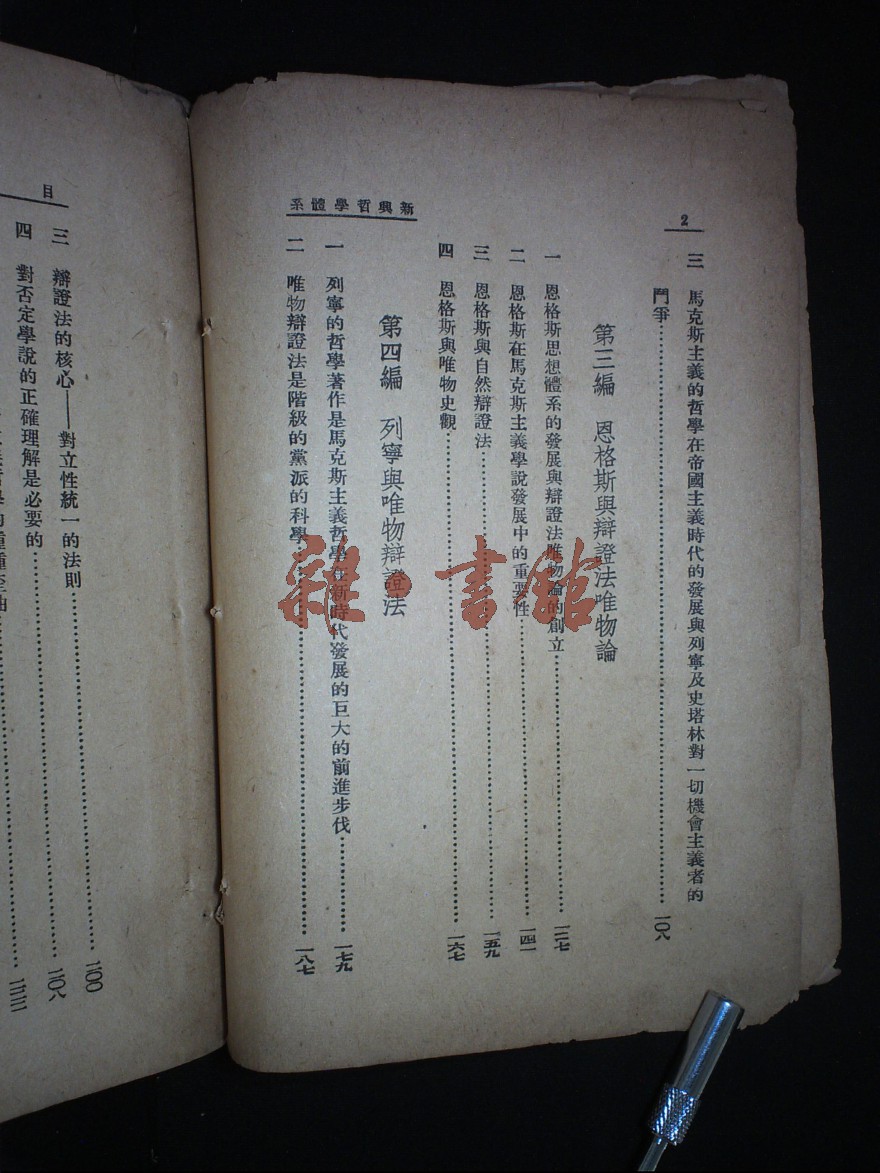 新興哲學體系
2
三　馬克斯主義的哲學在帝國主義時代的發展與列寧及史塔林對一切機會主義者的
鬥爭…………一〇八
第三編　恩格斯與辯證法唯物論
一　恩格斯思想體系的發展與辯證法唯物論的創立…………一二七
二　恩格斯在馬克斯主義學說發展中的重要性…………一四一
三　恩格斯與自然辯證法…………一五九
四　恩格斯與唯物史觀…………一六七
第四編　列寧與唯物辯證法
一　列寧的哲學著作是馬克斯主義哲學在新時代發展的巨大的前進步伐…………一七九
二　唯物辯證法是階級的黨派的科學…………一八七
目
三　辯證法的核心——對立性統一的法則…………二〇〇
四　對否定學說的正確理解是必要的…………二〇八
雜·書館